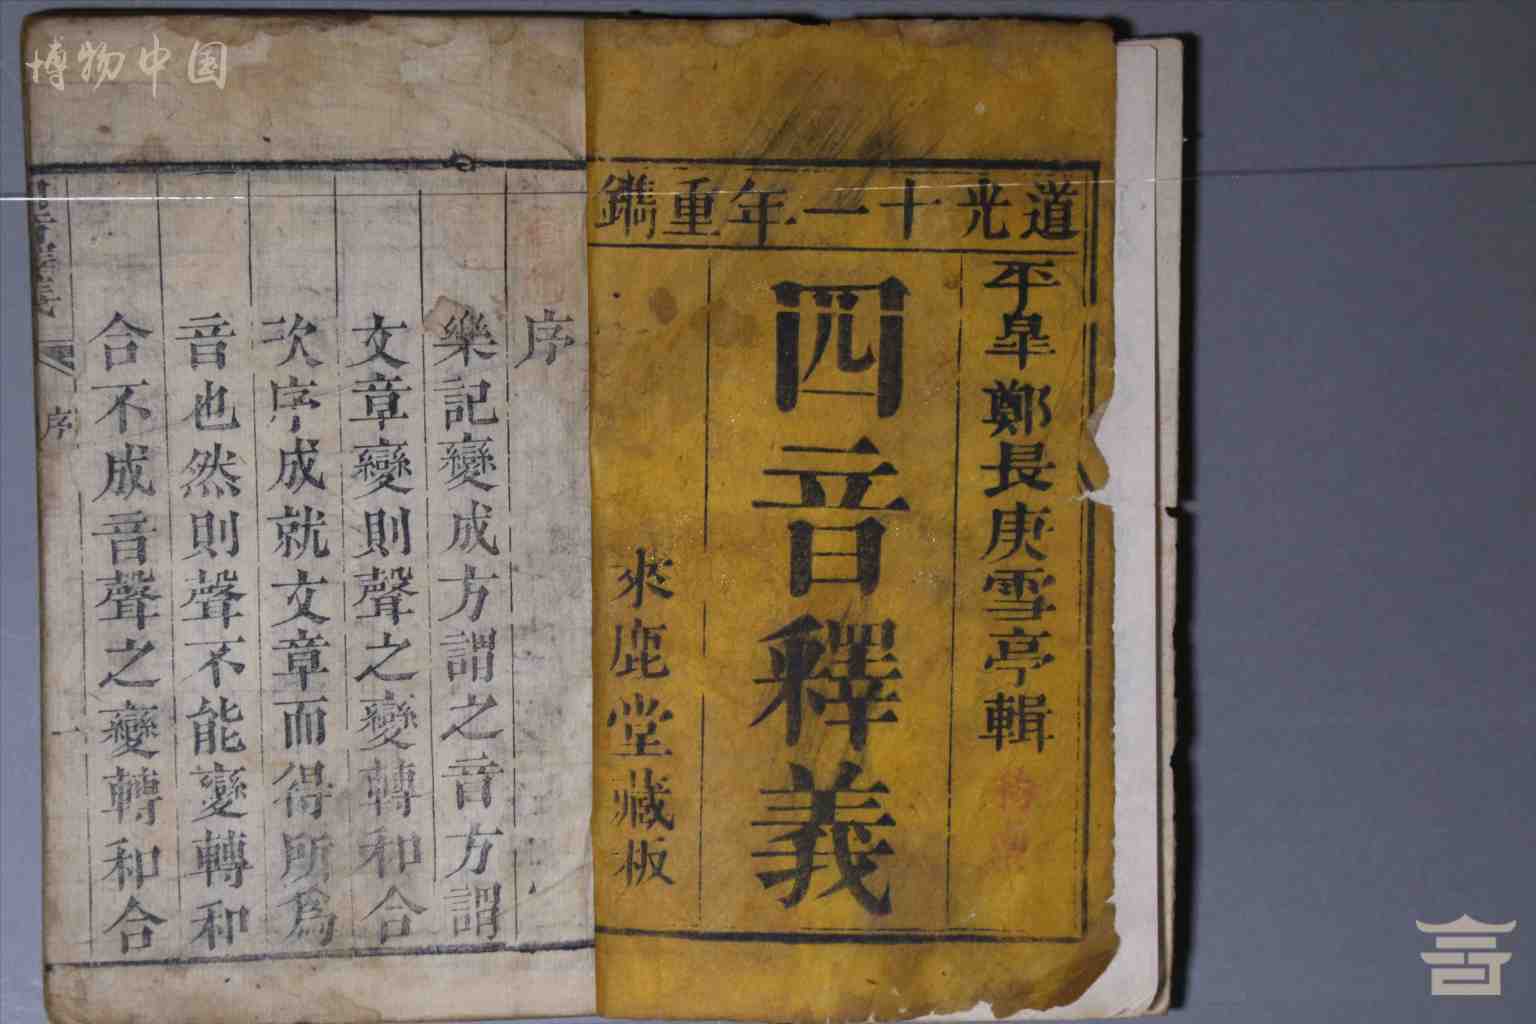 博物中国
道光十一年重鐫
平皐鄭長庚雪亭輯
四音釋義
來鹿堂藏板
序
樂記變成方謂之音方謂
文章變則聲之變轉和合
次序成就文章而得所爲
音也然則聲不能變轉和
合不成音聲之變轉和合
序
一